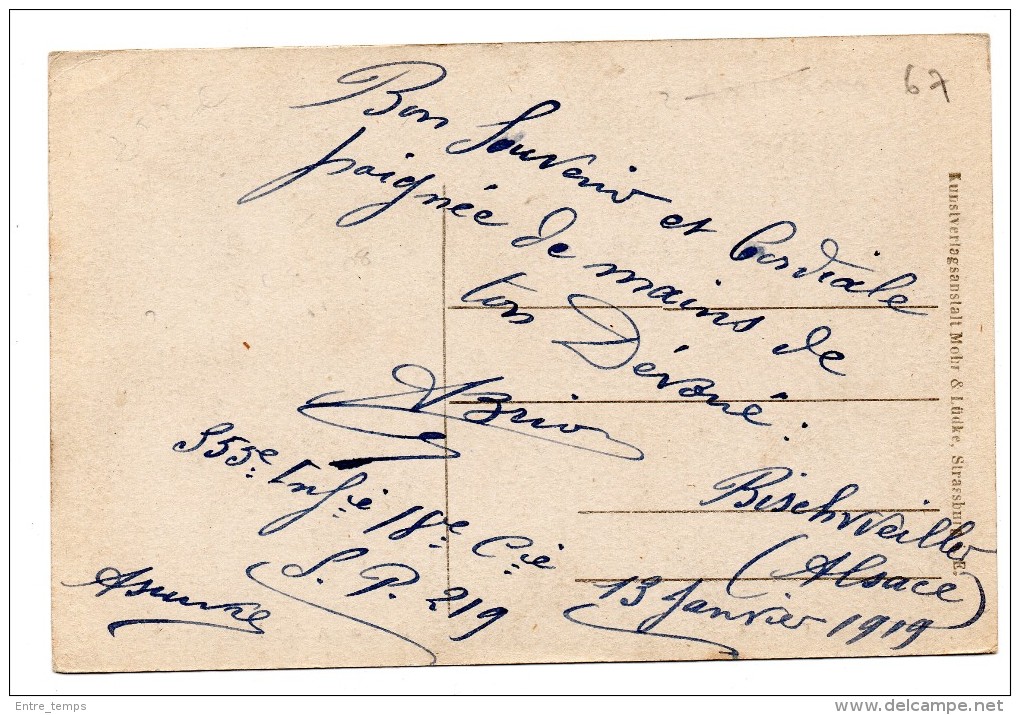 67
Bon Souvenir et Cordiale
poignée de mains de
ton Dévoué.
Brio
355e Infie 18e Cie
S. P. 219
Bischweiller
(Alsace)
13 Janvier 1919
Kunstverlagsanstalt Mohr & Lüdke, Strassbu
Entre_temps
delcampe.net